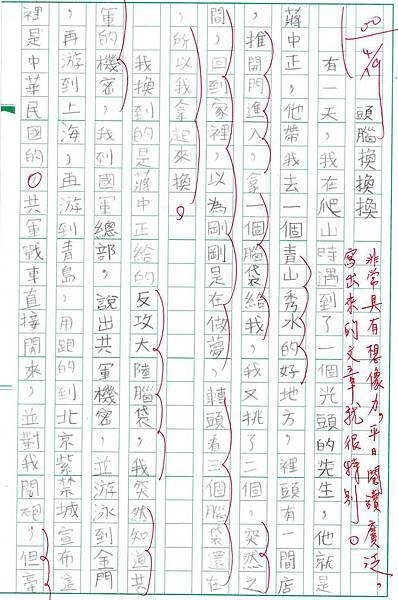 頭腦換換換
非常具有想像力，平日閱讀廣泛，
寫出來的文章就很特別。
有一天，我在爬山時遇到了一個光頭的先生，他就是
蔣中正，他帶我去一個青山秀水的好地方，裡頭有一間店
，推開門進入，拿一個腦袋給我，我又挑了二個，突然之
間，回到家裡，以為剛剛是在做夢，轉頭看三個腦袋還在
，所以我拿起來換。
我換到的是蔣中正給的反攻大陸腦袋，我突然知道共
軍的機密，我到國軍總部，說出共軍機密，並游泳到金門
，再游到上海，再游到青島，用跑的到北京紫禁城宣布這
裡是中華民國的。共軍戰車直接開來，並對我開砲，但毫